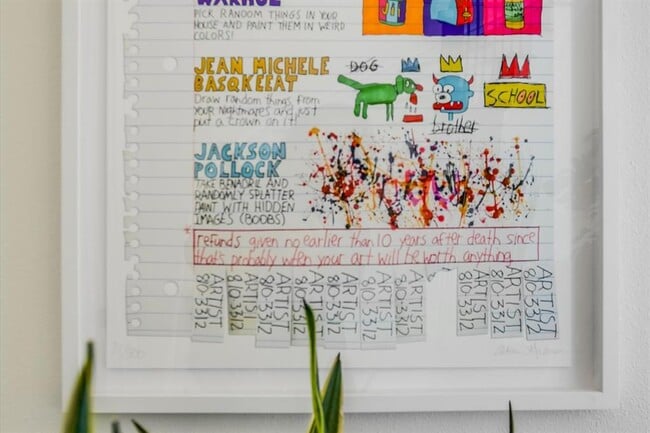 WARHOL
PICK RANDOM THINGS IN YOUR
HOUSE AND PAINT THEM IN WEIRD
COLORS!
JEAN MICHELE
BASQKEEAT
Draw random things from
your nightmares and just
put a crown on it!
DOG
SCHOOL
brother
JACKSON
POLLOCK
TAKE BENADRIL AND
RANDOMLY SPLATTER
PAINT WITH HIDDEN
IMAGES (BOOBS)
* refunds given no earlier than 10 years after death since
that's probably when your art will be worth anything
ARTIST
810-3312
ARTIST
810-3312
ARTIST
810-3312
ARTIST
810-3312
ARTIST
810-3312
ARTIST
810-3312
ARTIST
810-3312
ARTIST
810-3312
ARTIST
810-3312
ARTIST
810-3312